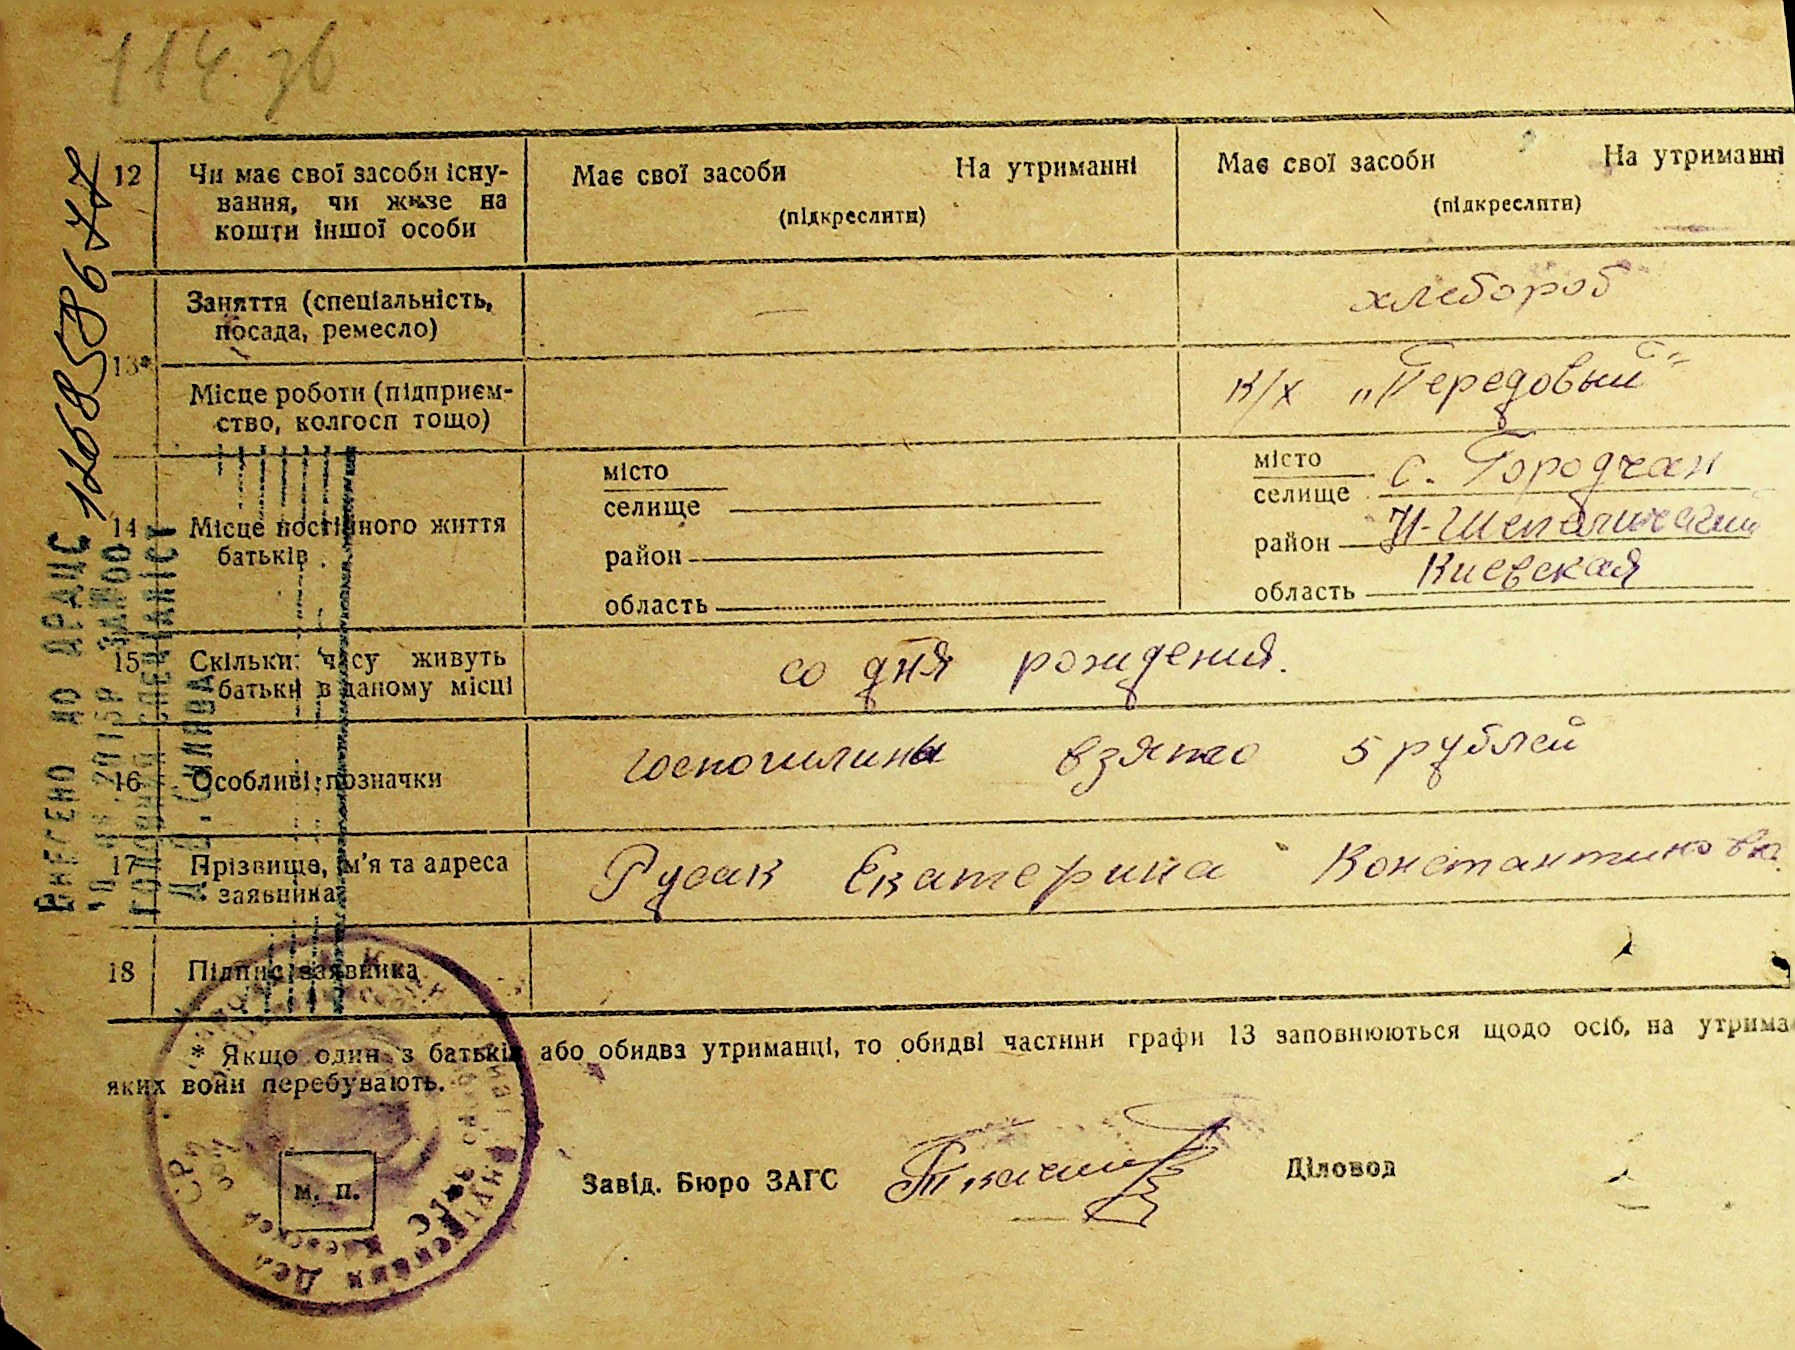 114 зв
12 Чи має свої засоби існу- Має свої засоби На утриманні Має свої засоби На утриманні
вання, чи живе на (підкреслити) (підкреслити)
кошти іншої особи
Заняття (спеціальність, — хлебороб
посада, ремесло)
13*
Місце роботи (підприєм- к/х „Передовый"
ство, колгосп тощо)
місто місто с. Городчан
селище селище
14 Місце постійного життя район район Н-Шепеличский
батьків область область Киевская
15 Скільки часу живуть со дня рождения.
батьки в даному місці
16 Особливі позначки госпошлины взято 5 рублей
17 Прізвище, ім'я та адреса Русак Екатерина Константиновна
заявника
18 Підпис заявника
* Якщо один з батьків або обидва утриманці, то обидві частини графи 13 заповнюються щодо осіб, на утрима
яких вони перебувають.
м. п. Завід. Бюро ЗАГС Діловод
Внесено до ДРАЦС
головний спеціаліст